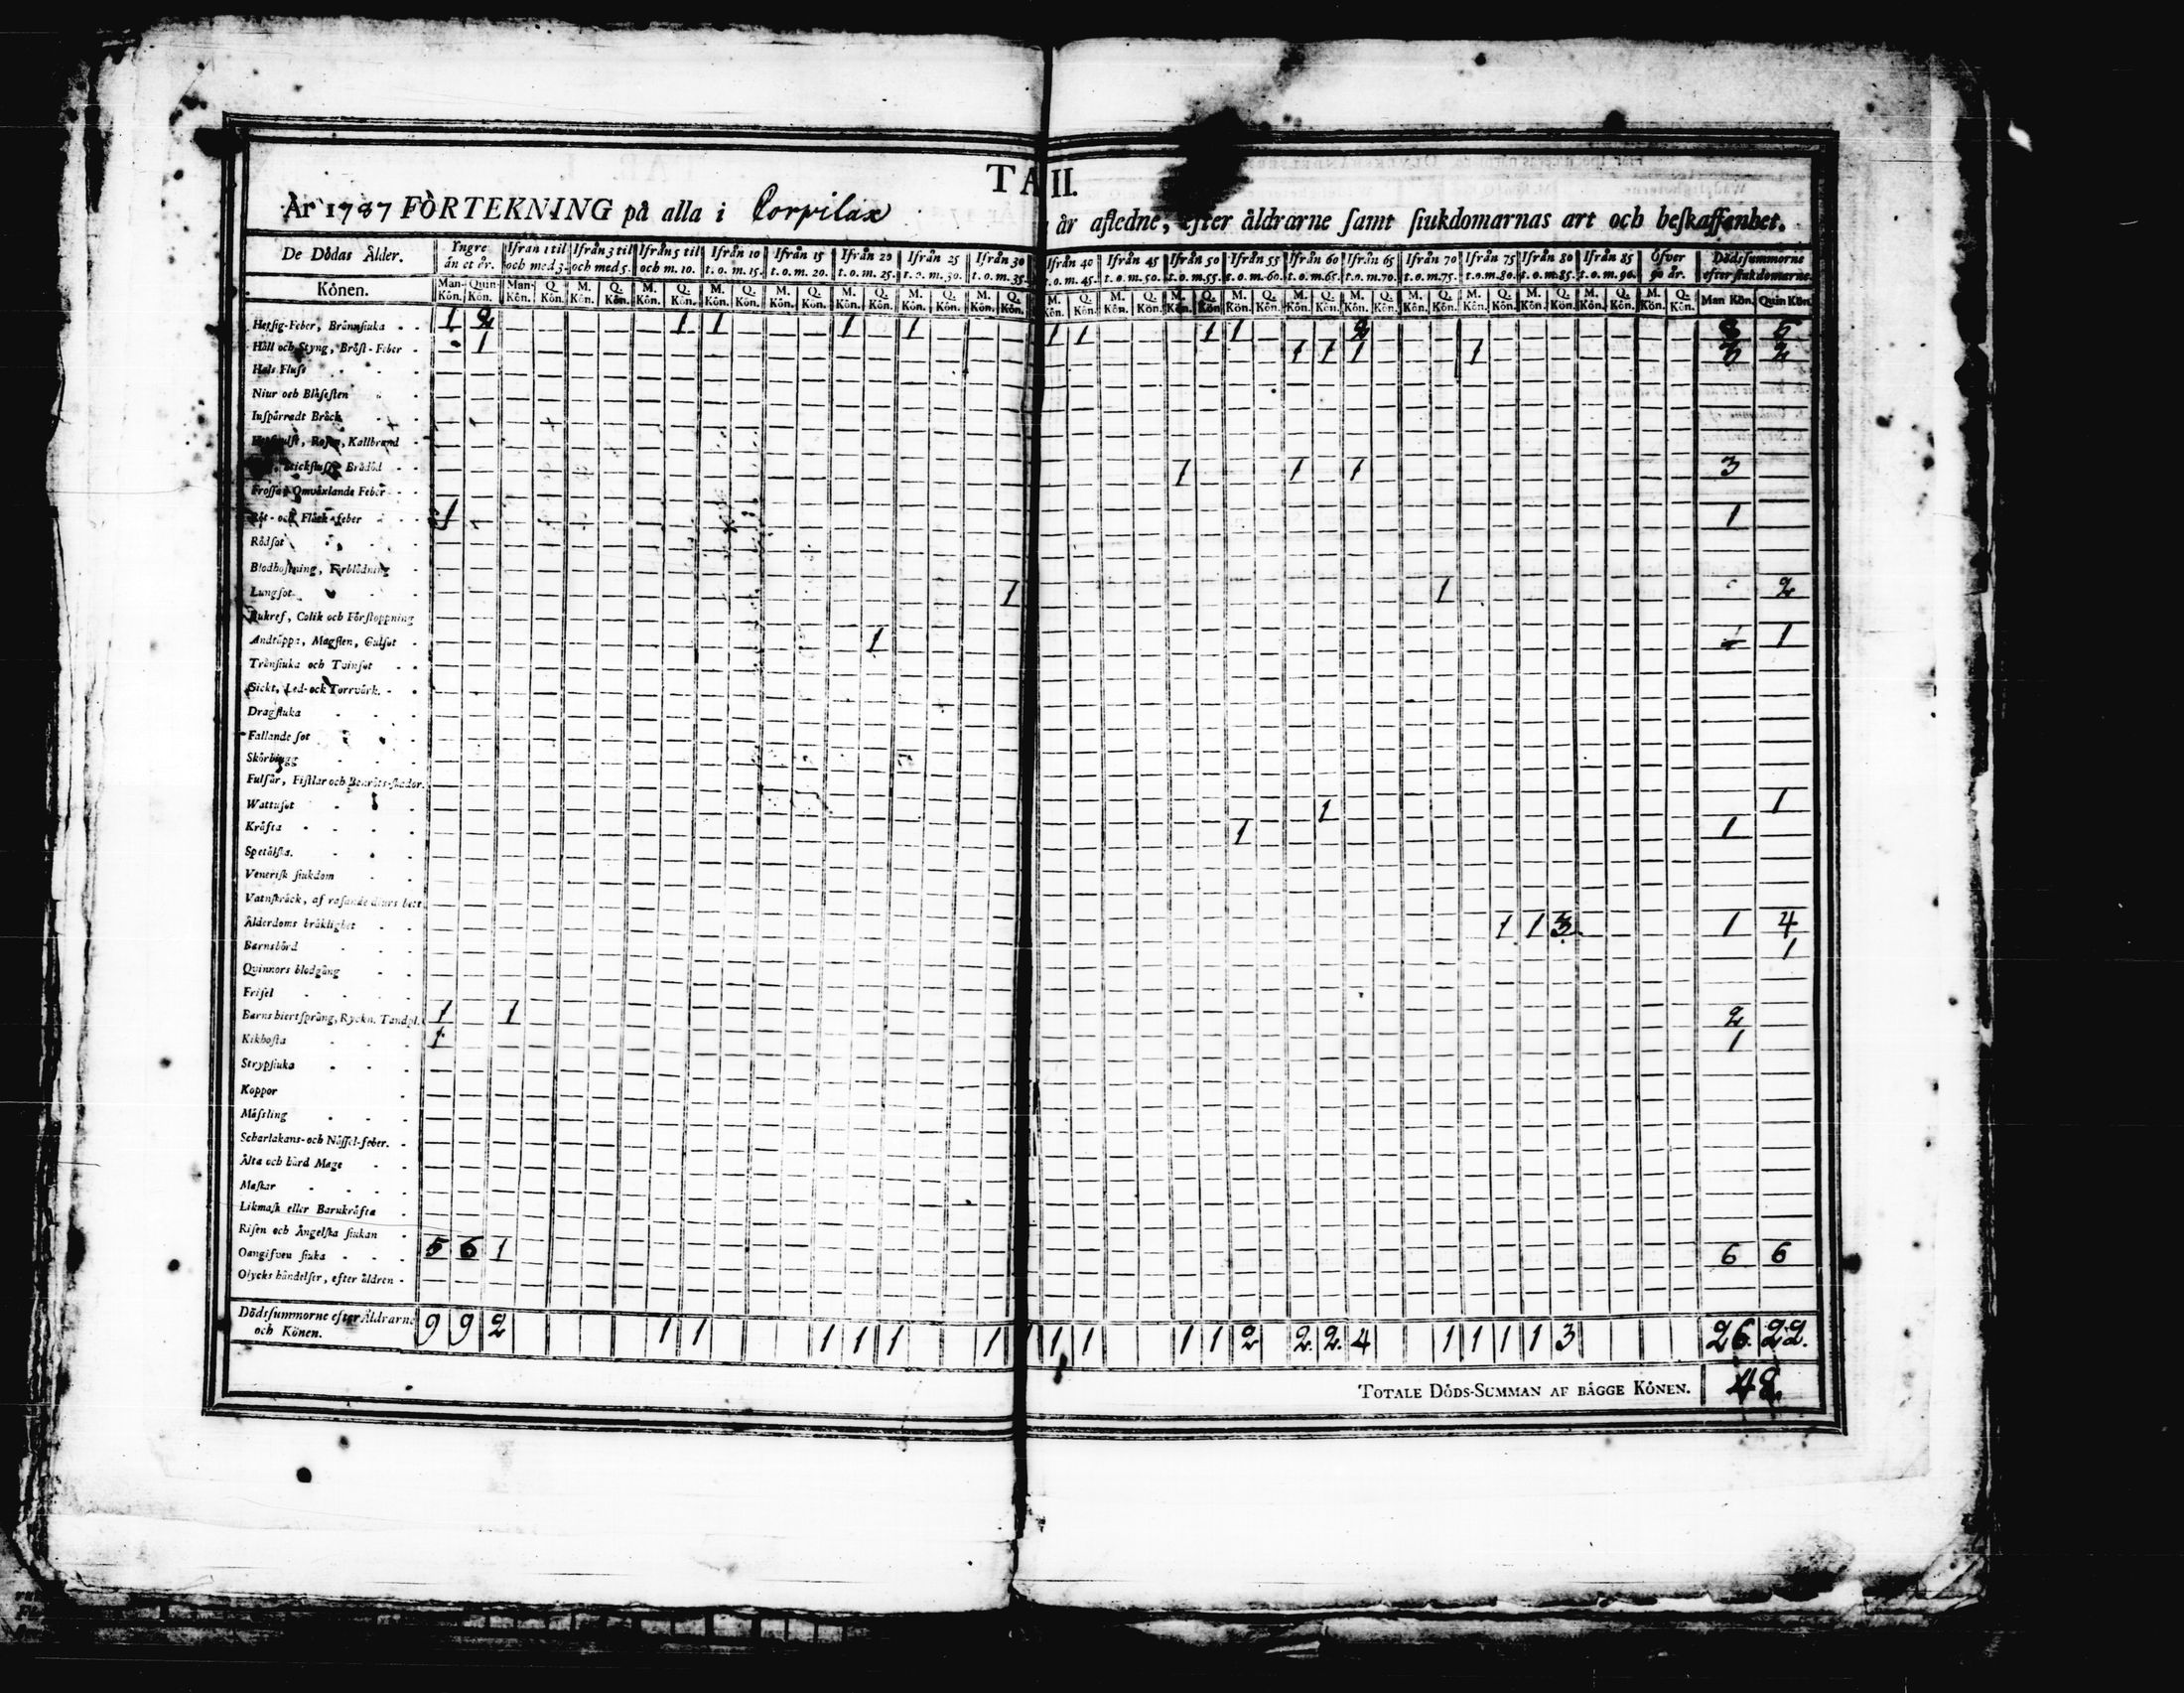 TA II.
År 1787 FÖRTEKNING på alla i Corpilax år afledne, efter åldrarne samt siukdomarnas art och beskaffenhet.
De Dödas Ålder. Yngre än et år. Ifrån 1 til och med 3. Ifrån 3 til och med 5. Ifrån 5 til och m. 10. Ifrån 10 t. o. m. 15. Ifrån 15 t. o. m. 20. Ifrån 20 t. o. m. 25. Ifrån 25 t. o. m. 30. Ifrån 30 t. o. m. 35. Ifrån 40 t. o. m. 45. Ifrån 45 t. o. m. 50. Ifrån 50 t. o. m. 55. Ifrån 55 t. o. m. 60. Ifrån 60 t. o. m. 65. Ifrån 65 t. o. m. 70. Ifrån 70 t. o. m. 75. Ifrån 75 t. o. m. 80. Ifrån 80 t. o. m. 85. Ifrån 85 t. o. m. 90. Öfver 90 år. Dödssummorne efter siukdomarne
Könen. Man-Kön. Quin-Kön. Man-Kön. Q. Kön. M. Kön. Q. Kön. M. Kön. Q. Kön. M. Kön. Q. Kön. M. Kön. Q. Kön. M. Kön. Q. Kön. M. Kön. Q. Kön. M. Kön. Q. Kön. M. Kön. Q. Kön. M. Kön. Q. Kön. M. Kön. Q. Kön. M. Kön. Q. Kön. M. Kön. Q. Kön. M. Kön. Q. Kön. M. Kön. Q. Kön. M. Kön. Q. Kön. M. Kön. Q. Kön. M. Kön. Q. Kön. M. Kön. Q. Kön. Man Kön. Quin Kön.
Hetsig-Feber, Brännsiuka 1 2 1 1 1 1 1 1 1 1 2 8 5
Håll och Styng, Bröst-Feber 1 1 1 1 1 3 2
Hals Fluss
Niur och Blåsesten
Inspärradt Bråck
Rosen, Kallbrand
Stickfluss, Brådöd 1 1 1 3
Frossa, Omväxlande Feber
Röt- och Fläck-feber 1 1
Rödsot
Blodhostning, Förblödning
Lungsot 1 1 2
Bukref, Colik och Förstoppning
Andtäppa, Magsten, Gulsot 1 1
Trånsiuka och Tvinsot
Gickt, Led- och Torrvärk.
Dragsiuka
Fallande sot
Skörbiugg
Fulsår, Fistlar och Benröts-skador.
Wattusot 1 1
Kräfta 1 1
Spetälska.
Venerisk siukdom
Vatnskräck, af rasande diurs bett
Ålderdoms bräklighet 1 1 3 1 4
Barnsbörd 1
Qvinnors blodgång
Frisel
Barns hiertsprång, Ryckn. Tandpl. 1 1 2
Kikhosta 1 1
Strypsiuka
Koppor
Mässling
Scharlakans- och Nässel-feber.
Älta och hård Mage
Maskar
Likmask eller Barnkräfta
Risen och Ängelska siukan
Oangifven siuka 5 6 1 6 6
Olycks händelser, efter åldren
Dödssummorne efter Åldrarne och Könen. 9 9 2 1 1 1 1 1 1 1 1 1 1 2 2. 2. 4 1 1 1 1 3 26. 22.
TOTALE DÖDS-SUMMAN AF BÅGGE KÖNEN. 48